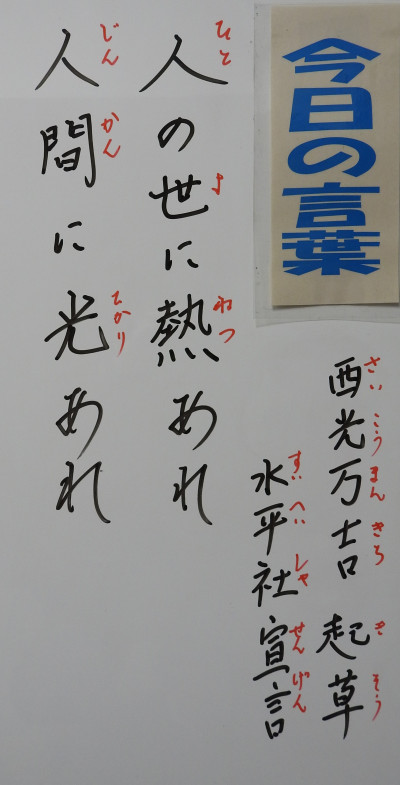 今日の言葉
西光万吉 起草
さい こう まん きち き そう
水平社宣言
すい へい しゃ せん げん
人の世に熱あれ
ひと よ ねつ
人間に光あれ
じん かん ひかり